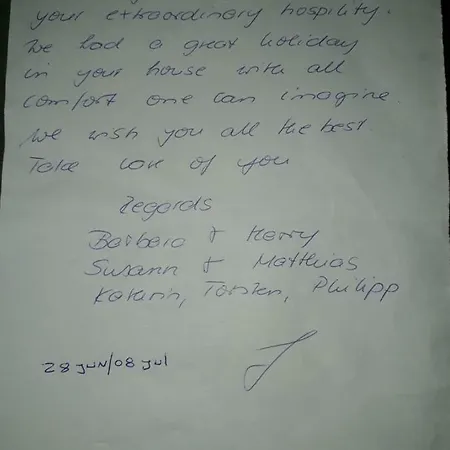 your extraordinary hospility.
We had a great holiday
in your house with all
comfort one can imagine.
We wish you all the best.
Take care of you
Regards
Barbara + Harry
Susann + Matthias
Katarin, Torsten, Philipp
28 JUN/08 Jul